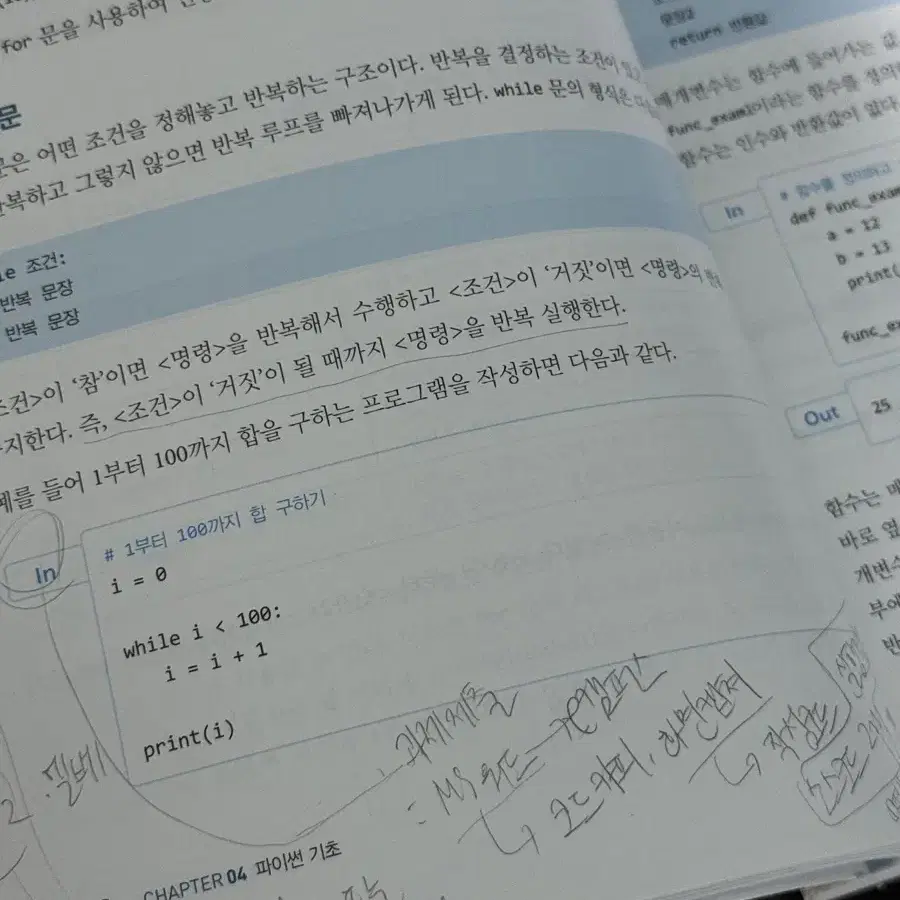 for 문을 사용하여
문
문은 어떤 조건을 정해놓고 반복하는 구조이다. 반복을 결정하는 조건이
반복하고 그렇지 않으면 반복 루프를 빠져나가게 된다. while 문의 형식은
le 조건:
반복 문장
반복 문장
조건>이 '참'이면 <명령>을 반복해서 수행하고 <조건>이 '거짓'이면 <명령>의
지한다. 즉, <조건>이 '거짓'이 될 때까지 <명령>을 반복 실행한다.
예를 들어 1부터 100까지 합을 구하는 프로그램을 작성하면 다음과 같다.
In
# 1부터 100까지 합 구하기
i = 0
while i < 100:
i = i + 1
print(i)
과제제출
: MS 워드
코드카피, 화면캡쳐
CHAPTER 04 파이썬 기초
문장2
return 반환값
매개변수는 함수에 들어가는 값
func_exam1이라는 함수를 정의
함수는 인수와 반환값이 없다
In
# 함수를 정의하고
def func_exam
a = 12
b = 13
print(
func_ex
Out
25
함수는 매
바로 옆
개변수
부에
반